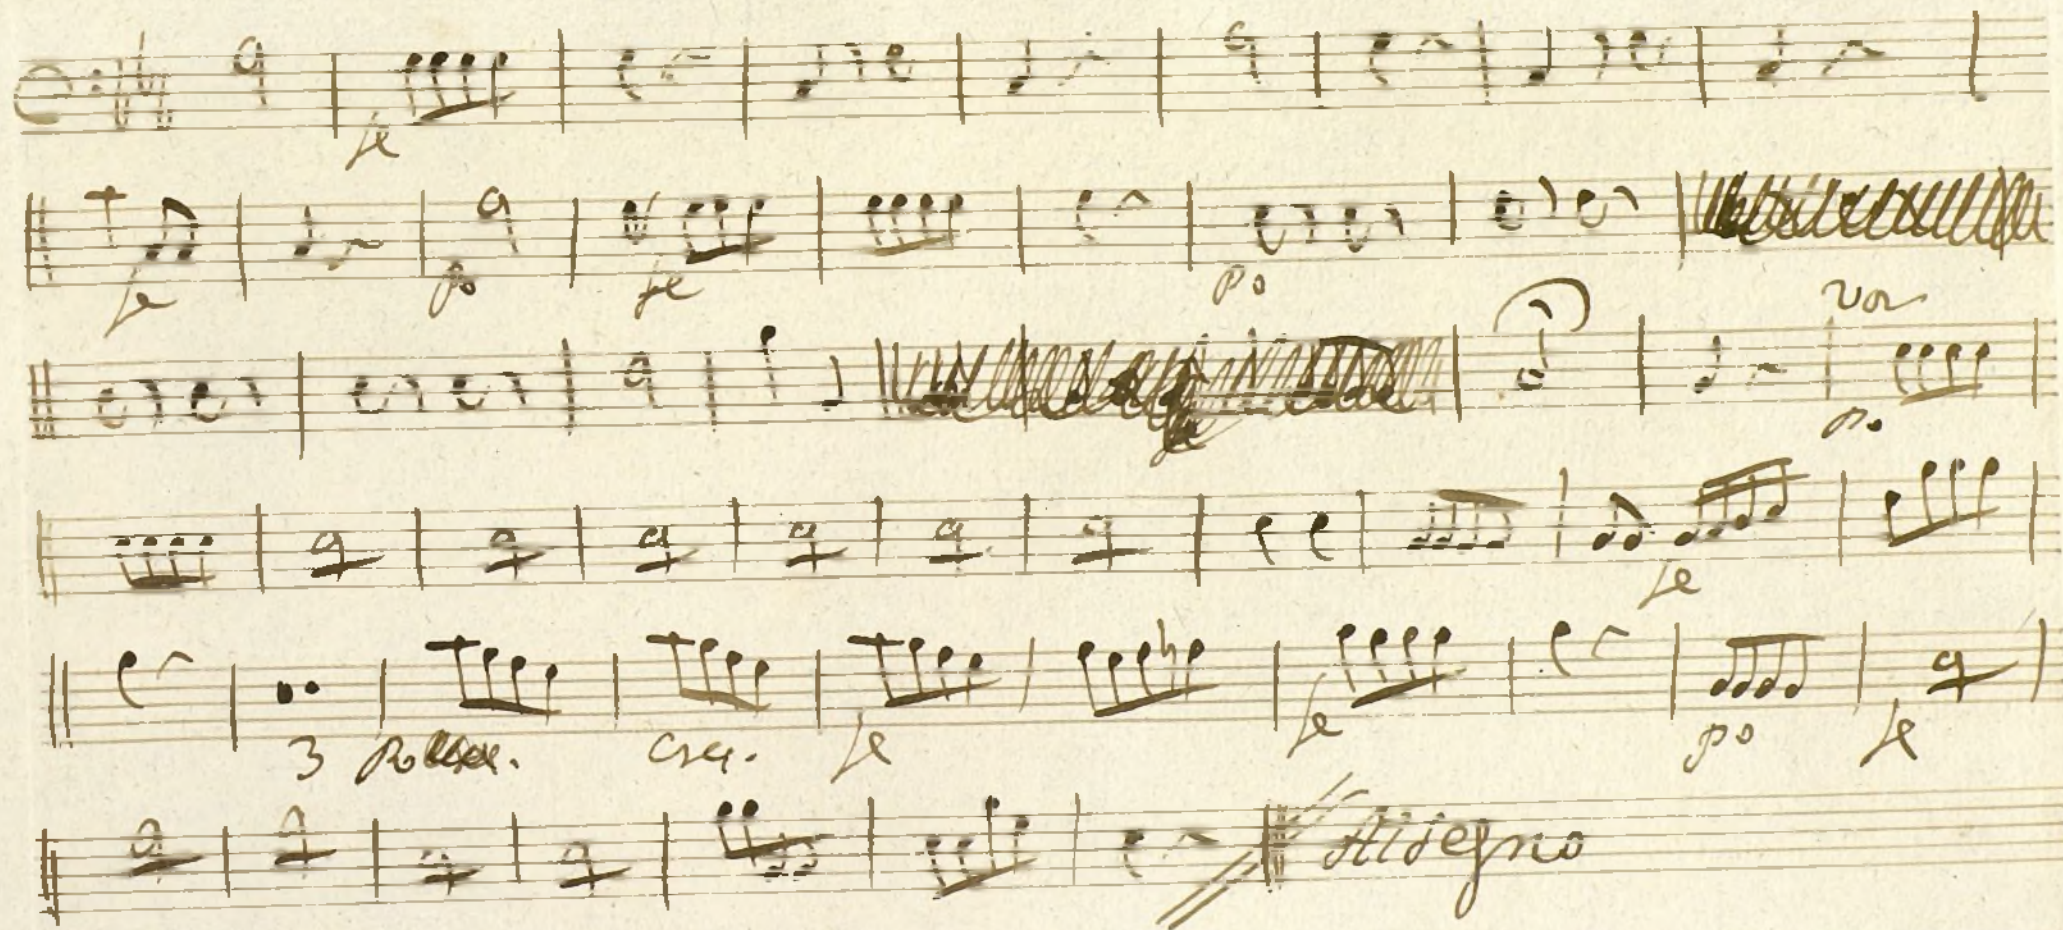 fe
fe po fe po
vor
po
fe
3 po cre. fe fe po fe
Al segno